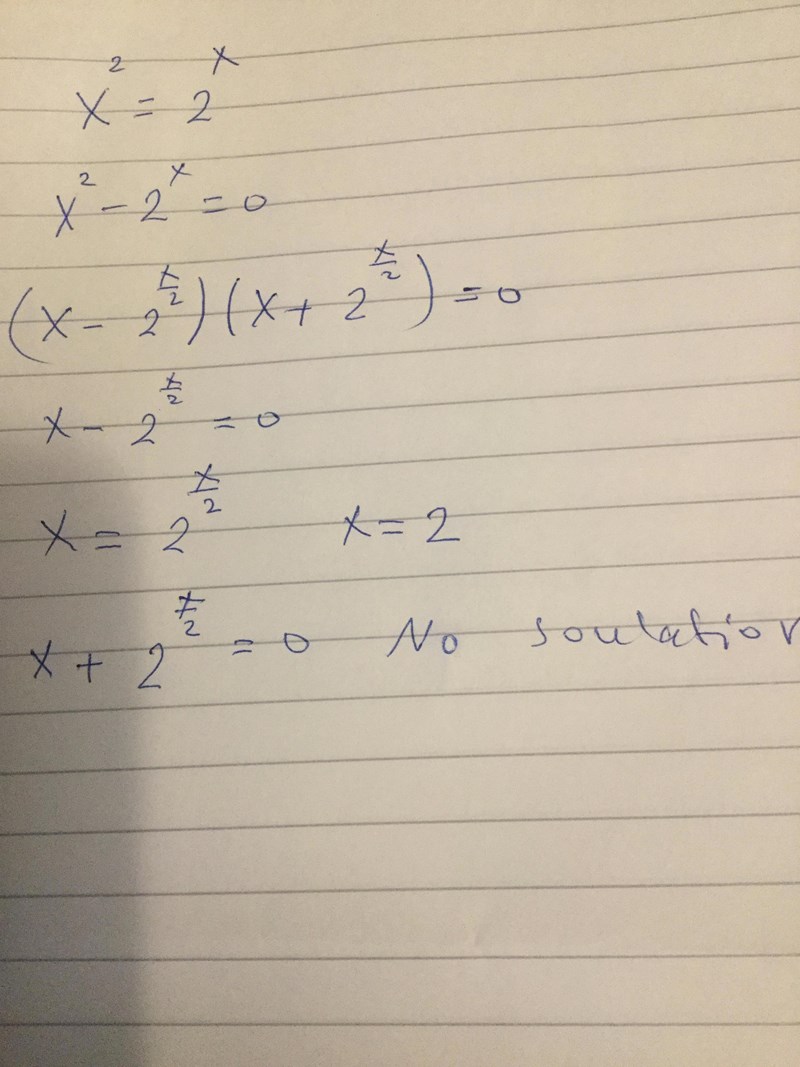 x² = 2ˣ
x² - 2ˣ = 0
(x - 2^(x/2)) (x + 2^(x/2)) = 0
x - 2^(x/2) = 0
x = 2^(x/2) x = 2
x + 2^(x/2) = 0 No soulation